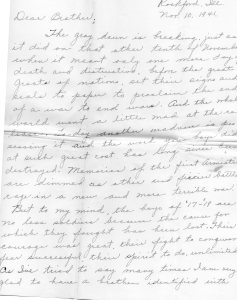 Rockford, Ill.
Nov. 10, 1941
Dear Brother,
The gray dawn is breaking, just as
it did on that other tenth of November
when it meant only one more day
death and distruction, before the
Greats of nations, set their signs and
seals to paper to proclaim the end
of a war to end wars. And the whole
world went a little mad at the
To-day another madness is
sessing it and the work you boys did
at such great cost has long since been
destroyed. Memories of the first Armistice
are dimmed as other and fiercer battles
rage in a new and more terrible war.
But to my mind, the boys of '17-18 are
no less soldiers because the cause for
which they fought has been lost. Their
courage was great, their fight to conquer
fear successful, their spirit to do, unlimited.
As I've tried to say many times I am very
glad to have a brother identified with